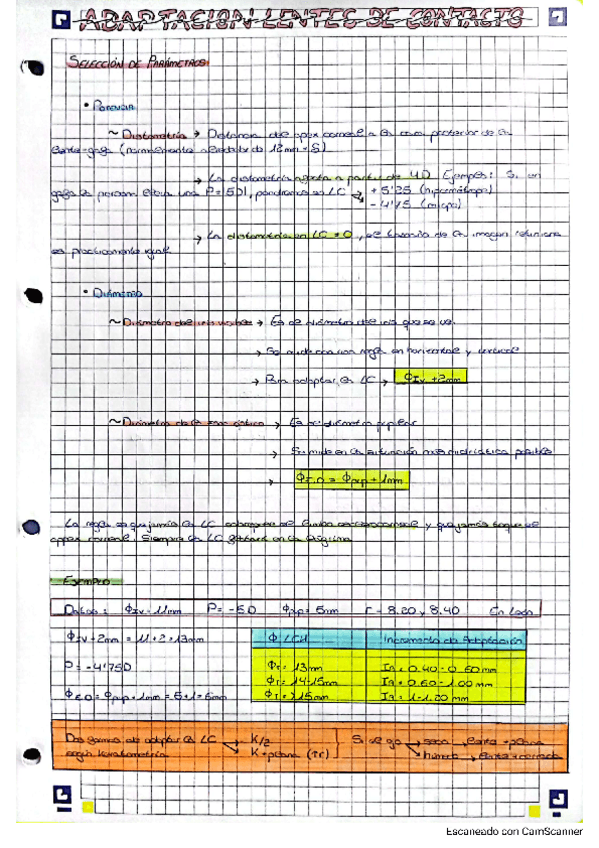 ADAPTACION LENTES DE CONTACTO
SELECCIÓN DE PARÁMETROS
• POTENCIA
~ Distometría → Distancia del apex corneal a la cara posterior de la
lente-gafa (normalmente alrededor de 12mm
→ La distometría afecta a partir de 4D Ejemplo: Si en
gafa la persona lleva una P=5D, pondremos en LC → +5'25 (hipermétrope)
-4'75 (miope)
→ La distometría en LC = 0, el tamaño de la imagen retiniana
es prácticamente igual
• DIÁMETRO
~ Diámetro del iris visible → Es el diámetro del iris que se ve.
→ Se mide con una regla en horizontal y vertical
→ Para adaptar la LC → ΦIV + 2mm
~ Diámetro de la zona óptica → Es el diámetro pupilar
→ Se mide en la situación más midriática posible
→ ΦZ.O = Φpup + 1mm
La regla es que jamás la LC sobrepase el limbo esclerocorneal y que jamás toque el
apex corneal. Siempre la LC flotará en la lágrima
Ejemplo
Datos: ΦIV = 11mm P = -5D Φpup = 5mm r = 8.20 y 8.40
ΦIV + 2mm = 11 + 2 = 13mm
Φ LCH Incremento de Adaptación
P = -4'75D
ΦT = 13mm IA = 0.40 - 0.60mm
ΦT = 14-15mm IA = 0.60 - 1.00 mm
ΦZ.O = Φpup + 1mm = 5 + 1 = 6mm
ΦT = >15mm IA = 1 - 1.20 mm
Dos formas de adaptar la LC → K/2
según keratometría → K + plana (rc)
Si el ojo → seco → lente + plana
→ húmedo → lente + cerrada
Escaneado con CamScanner